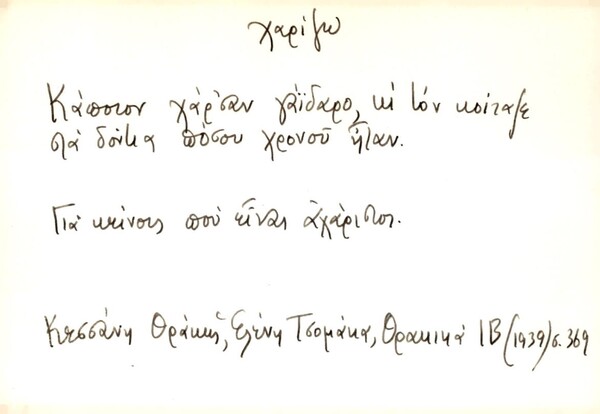 χαρίζω
Κάποιον χάρ'σαν γάϊδαρο, κι τόν κοίταξε
στά δόντια πόσου χρονού ἤταν.
Γιά κείνους πού εἶναι ἀχάριστοι.
Κεσσάνη Θράκης, Ἑλένη Τσομάκα, Θρακικά ΙΒ (1939) σ. 369